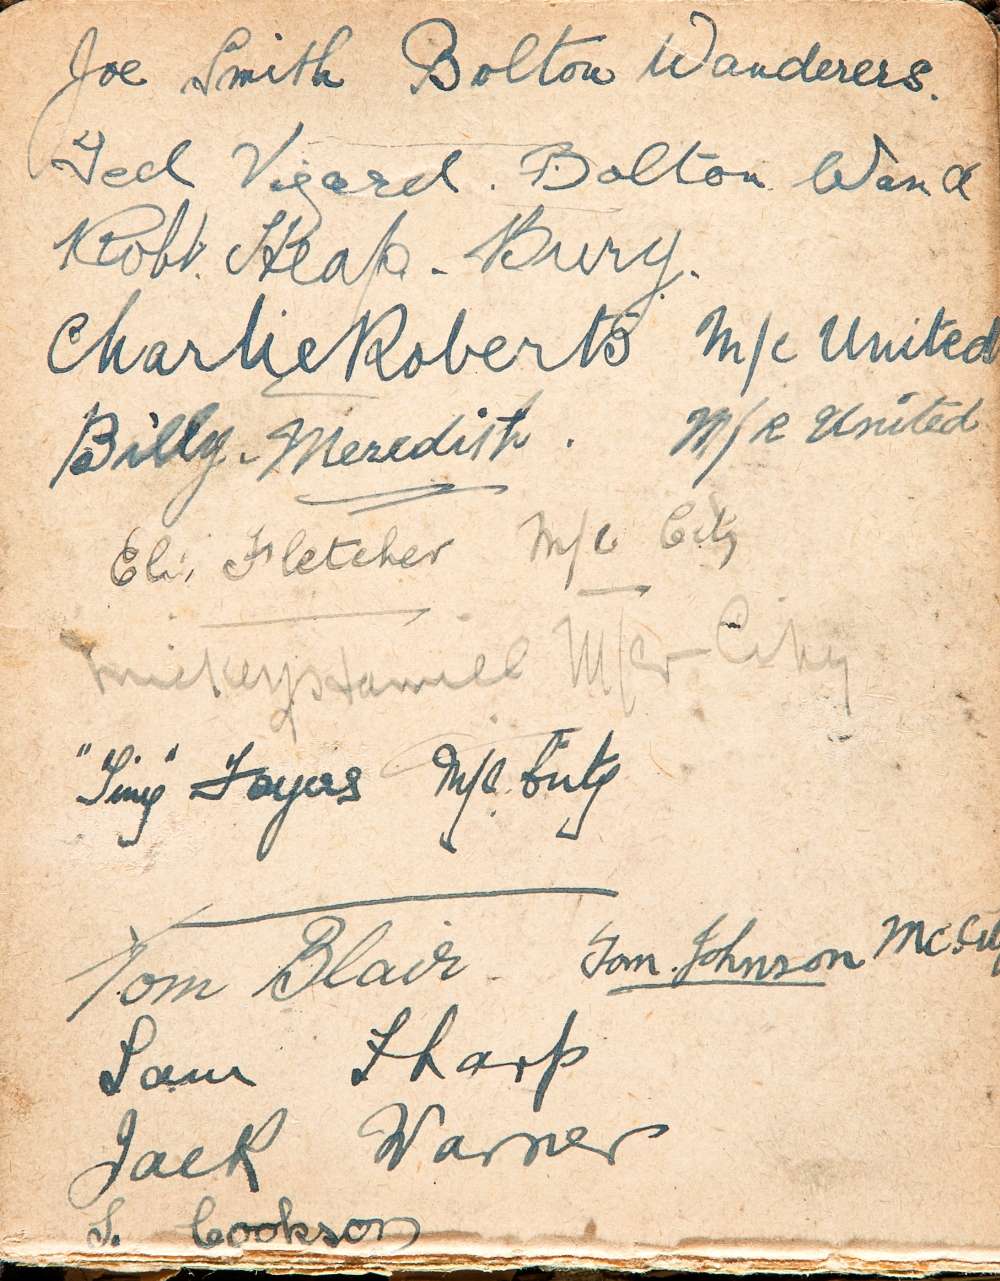 Joe Smith Bolton Wanderers.
Ted Vizard. Bolton Wand
Robt. Heap - Bury.
Charlie Roberts M/c United
Billy Meredith. M/R United
Eli Fletcher M/c City
Mickey Hamill M/cr City
"Tiny" Fayers M/C. City
Tom Blair Tom. Johnson Mc. City
Sam Sharp
Jack Warner
S. Cookson